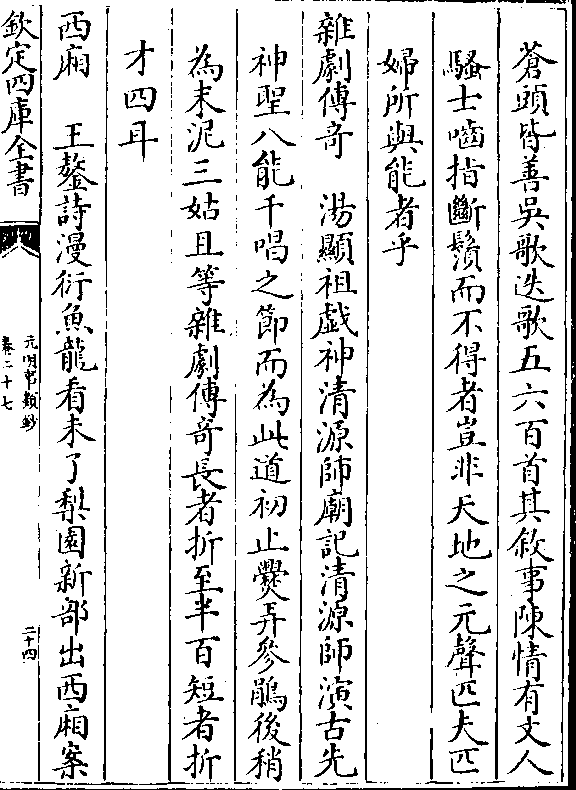 蒼頭皆善吳歌迭歌五六百首其敘事陳情有文人
騷士嚙指斷鬚而不得者豈非天地之元聲匹夫匹
婦所與能者乎
雜劇傳奇　湯顯祖戯神清源師廟記清源師演古先
神聖八能千唱之節而為此道初止爨弄參鶻後稍
為末泥三姑旦等雜劇傳奇長者折至半百短者折
才四耳
西廂　王鏊詩漫衍魚龍看未了梨園新部出西廂案
欽定四庫全書
元明事類鈔
卷二十七
二十四